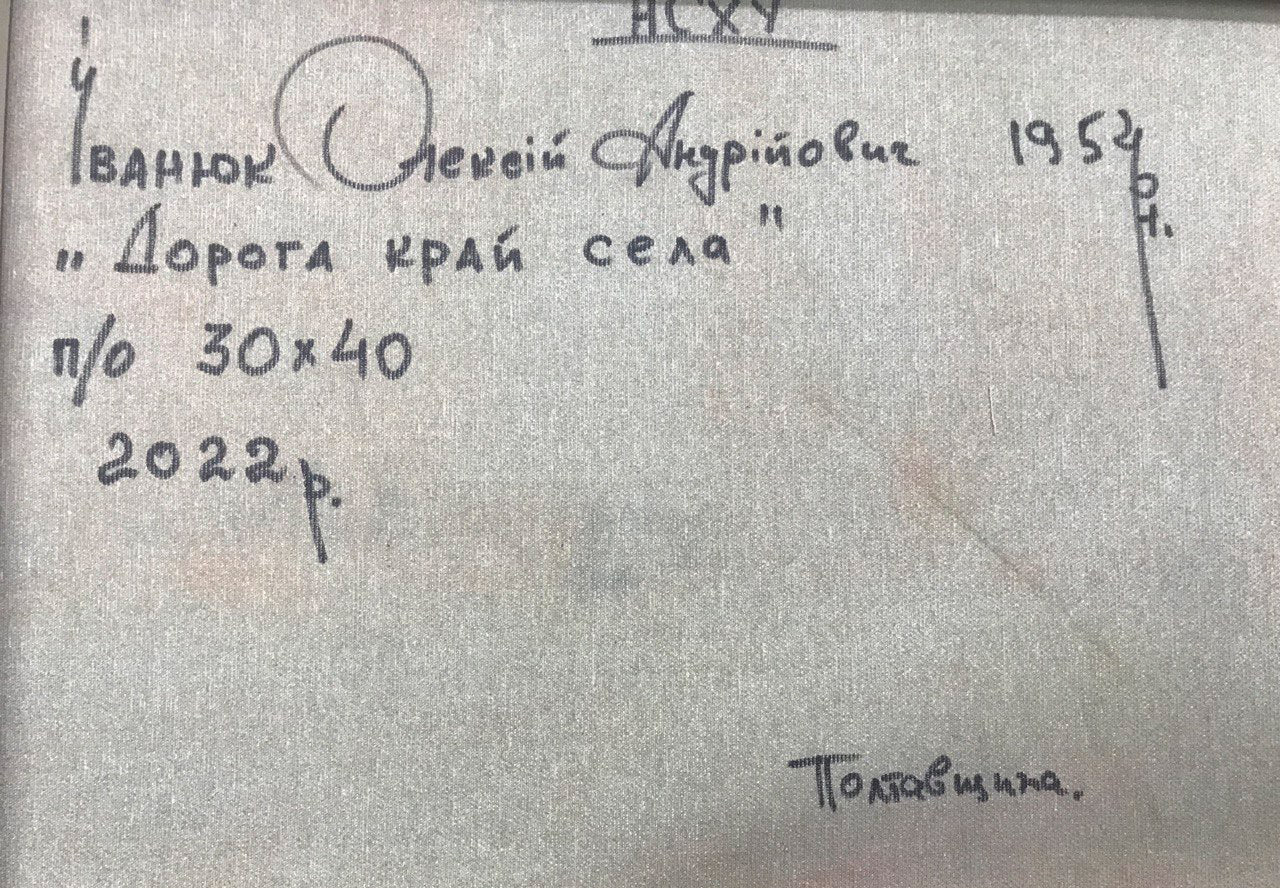 НСХУ
Іванюк Олексій Андрійович 1954 р.н.
„Дорога край села"
п/о 30х40
2022 р.
Полтавщина.